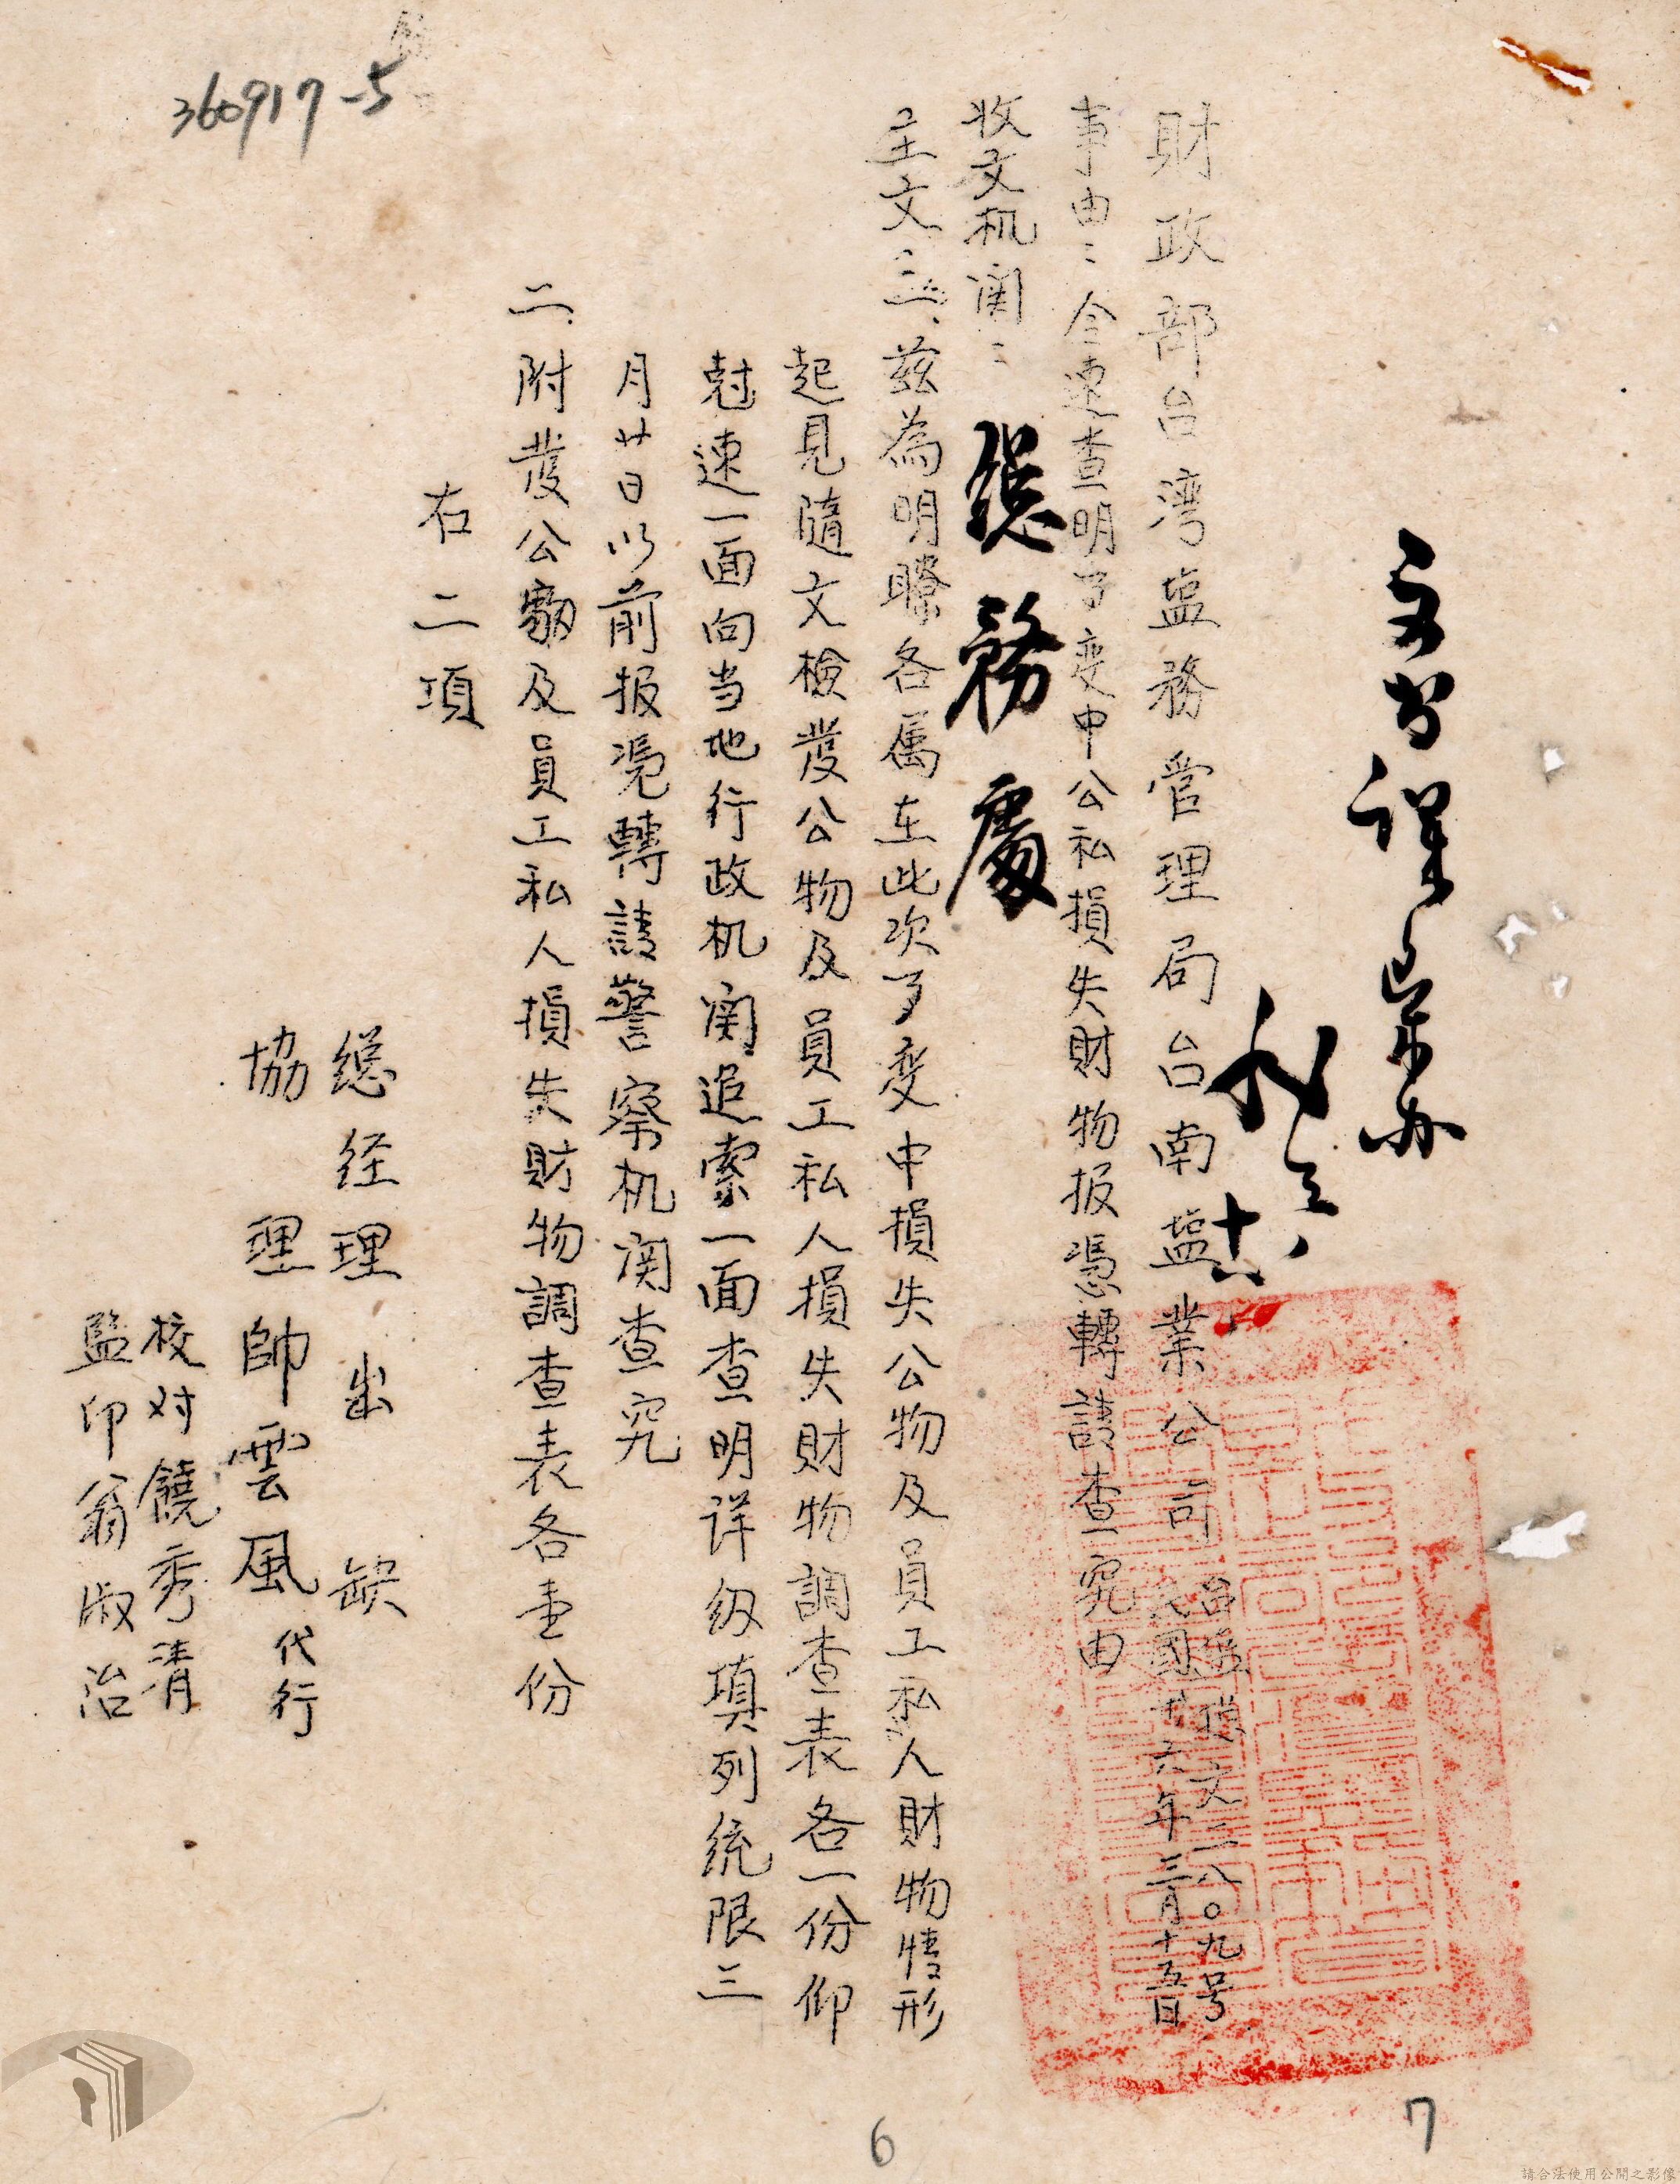 360917-5
文书課彙办
十六
財政部台湾塩務管理局台南塩業公司
文二八〇九号
民國卅六年三月十五日
事由：令速查明事变中公私損失財物报憑轉請查究由
收文机関：総務處
主文：一、茲為明瞭各属在此次事变中損失公物及員工私人財物情形
起見隨文檢發公物及員工私人損失財物調查表各一份仰
尅速一面向当地行政机関追索一面查明详细填列统限三
月廿日以前报凭轉請警察机関查究
二、附發公物及員工私人損失財物調查表各壹份
右二項
総经理 出缺
協理 帥雲風代行
校对饒秀清
監印翁淑治
6
7
請合法使用公開之影像